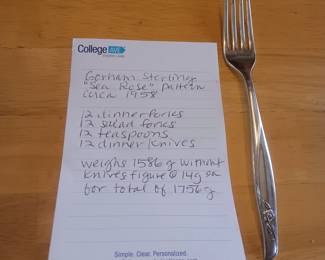 College AVE
Gorham Sterling
"Sea Rose" pattern
circa 1958
12 dinner forks
12 salad forks
12 teaspoons
12 dinner knives
weighs 1586g without
knives figure @ 14g ea
for total of 1756g
Simple. Clear. Personalized.